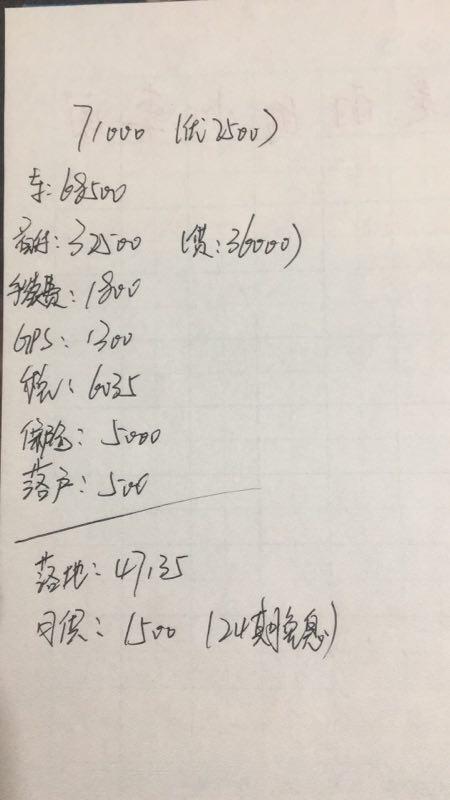 71000 (优2500)
车:68500
首付:32500 (贷:36000)
手续费:1800
GPS:1300
税:6035
保险:5000
落户:500
落地:47135
月供:1500 (24期免息)